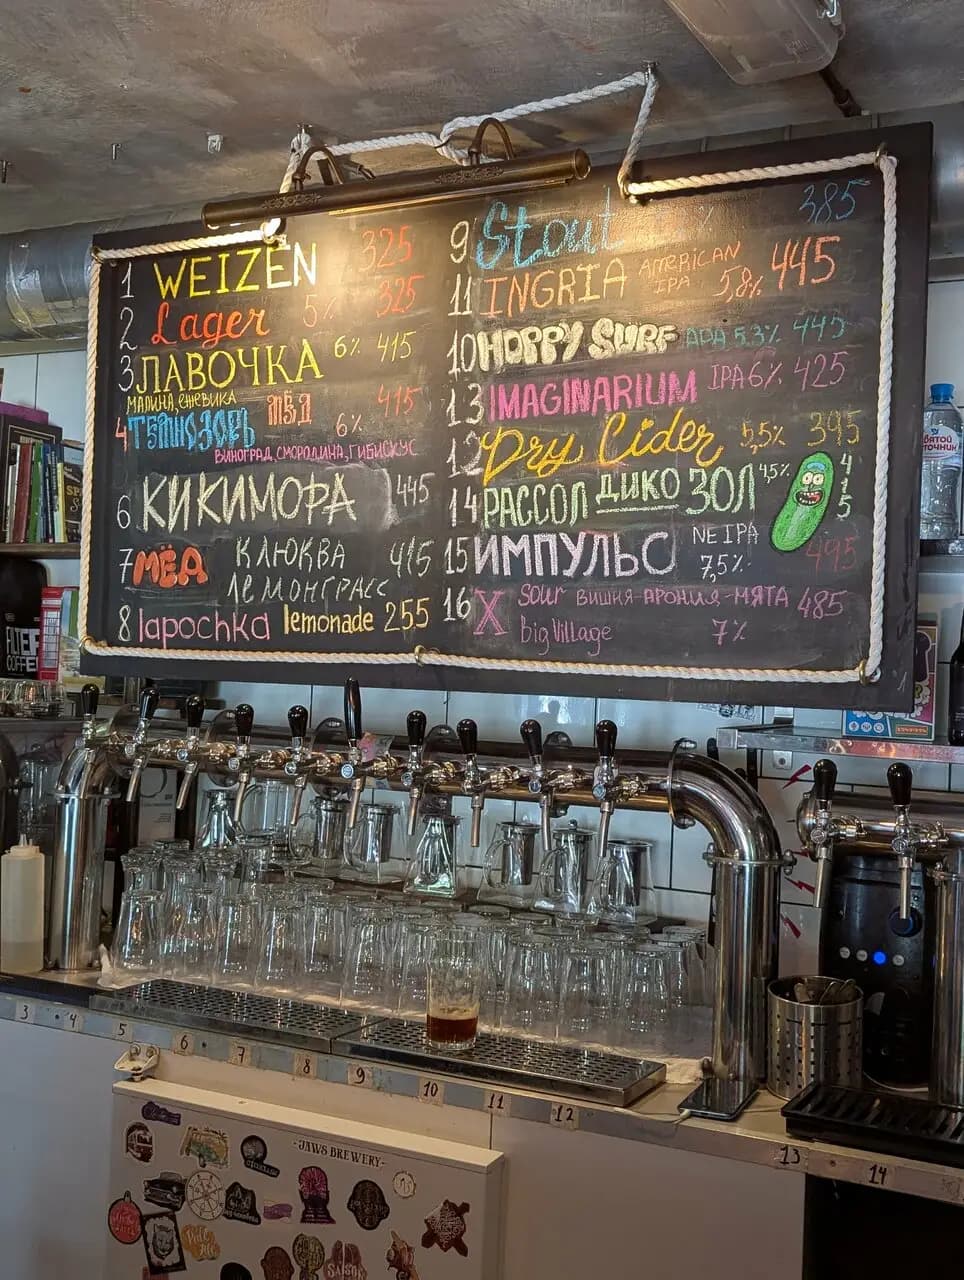 1 WEIZEN 325
2 Lager 5% 325
3 ЛАВОЧКА 6% 415
МАЛИНА, ЕЖЕВИКА
4 ТЕМНОЗОРЬ МЁД 6% 415
ВИНОГРАД, СМОРОДИНА, ГИБИСКУС
6 КИКИМОРА 445
7 МЁД КЛЮКВА 415
ЛЕМОНГРАСС
8 lapochka lemonade 255
9 Stout 385
11 INGRIA AMERICAN IPA 5,8% 445
10 HOPPY SURF APA 5.3% 445
13 IMAGINARIUM IPA 6% 425
12 Dry Cider 5,5% 395
14 РАССОЛ ДИКО ЗОЛ 4,5% 415
15 ИМПУЛЬС NE IPA 7,5% 495
16 X sour ВИШНЯ-АРОНИЯ-МЯТА 485
Big Village 7%
3 4 5 6 7 8 9 10 11 12 13 14
-JAWS BREWERY-